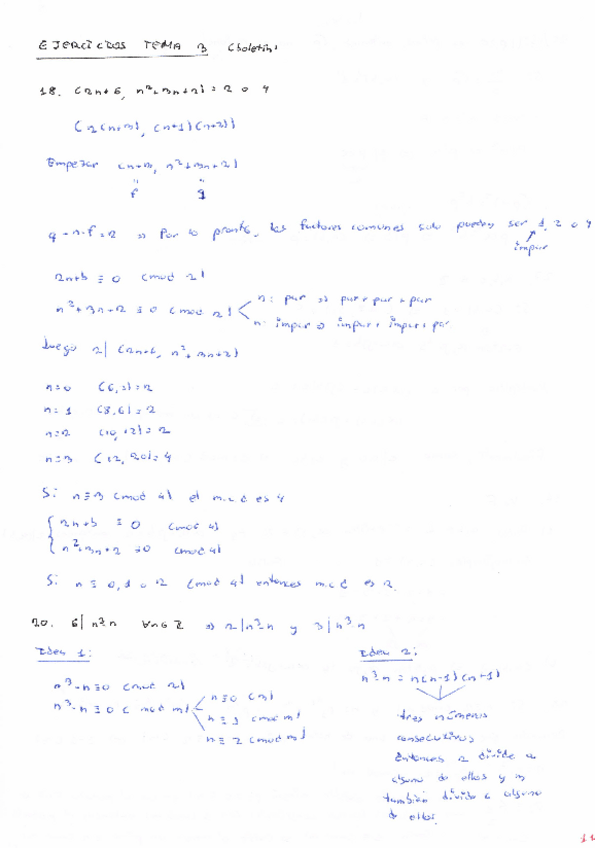 EJERCICIOS TEMA 3 (boletín)
18. (2n+6, n²+3n+2) = 2 o 4
(2(n+3), (n+1)(n+2))
Empezar (n+3, n²+3n+2)
" "
f g
g - n·f = 2 ⇒ Por lo pronto, los factores comunes solo pueden ser 1, 2 o 4
impar
2n+6 ≡ 0 (mod 2)
n²+3n+2 ≡ 0 (mod 2) n: par ⇒ par + par + par
n: impar ⇒ impar + impar + par
Luego 2 | (2n+6, n²+3n+2)
n=0 (6,2)=2
n=1 (8,6)=2
n=2 (10,12)=2
n=3 (12,20)=4
Si n≡3 (mod 4) el m.c.d es 4
2n+6 ≡ 0 (mod 4)
n²+3n+2 ≡0 (mod 4)
Si n ≡ 0,1 o 2 (mod 4) entonces m.c.d es 2
20. 6 | n³-n ∀n∈ℤ ⇒ 2 | n³-n y 3 | n³-n
Idea 1:
n³-n ≡0 (mod 2)
n³-n ≡ 0 (mod 3) n≡0 (3)
n≡1 (mod 3)
n≡2 (mod 3)
Idea 2:
n³-n = n(n-1)(n+1)
tres números
consecutivos
Entonces 2 divide a
alguno de ellos y 3
también divide a alguno
de ellos.